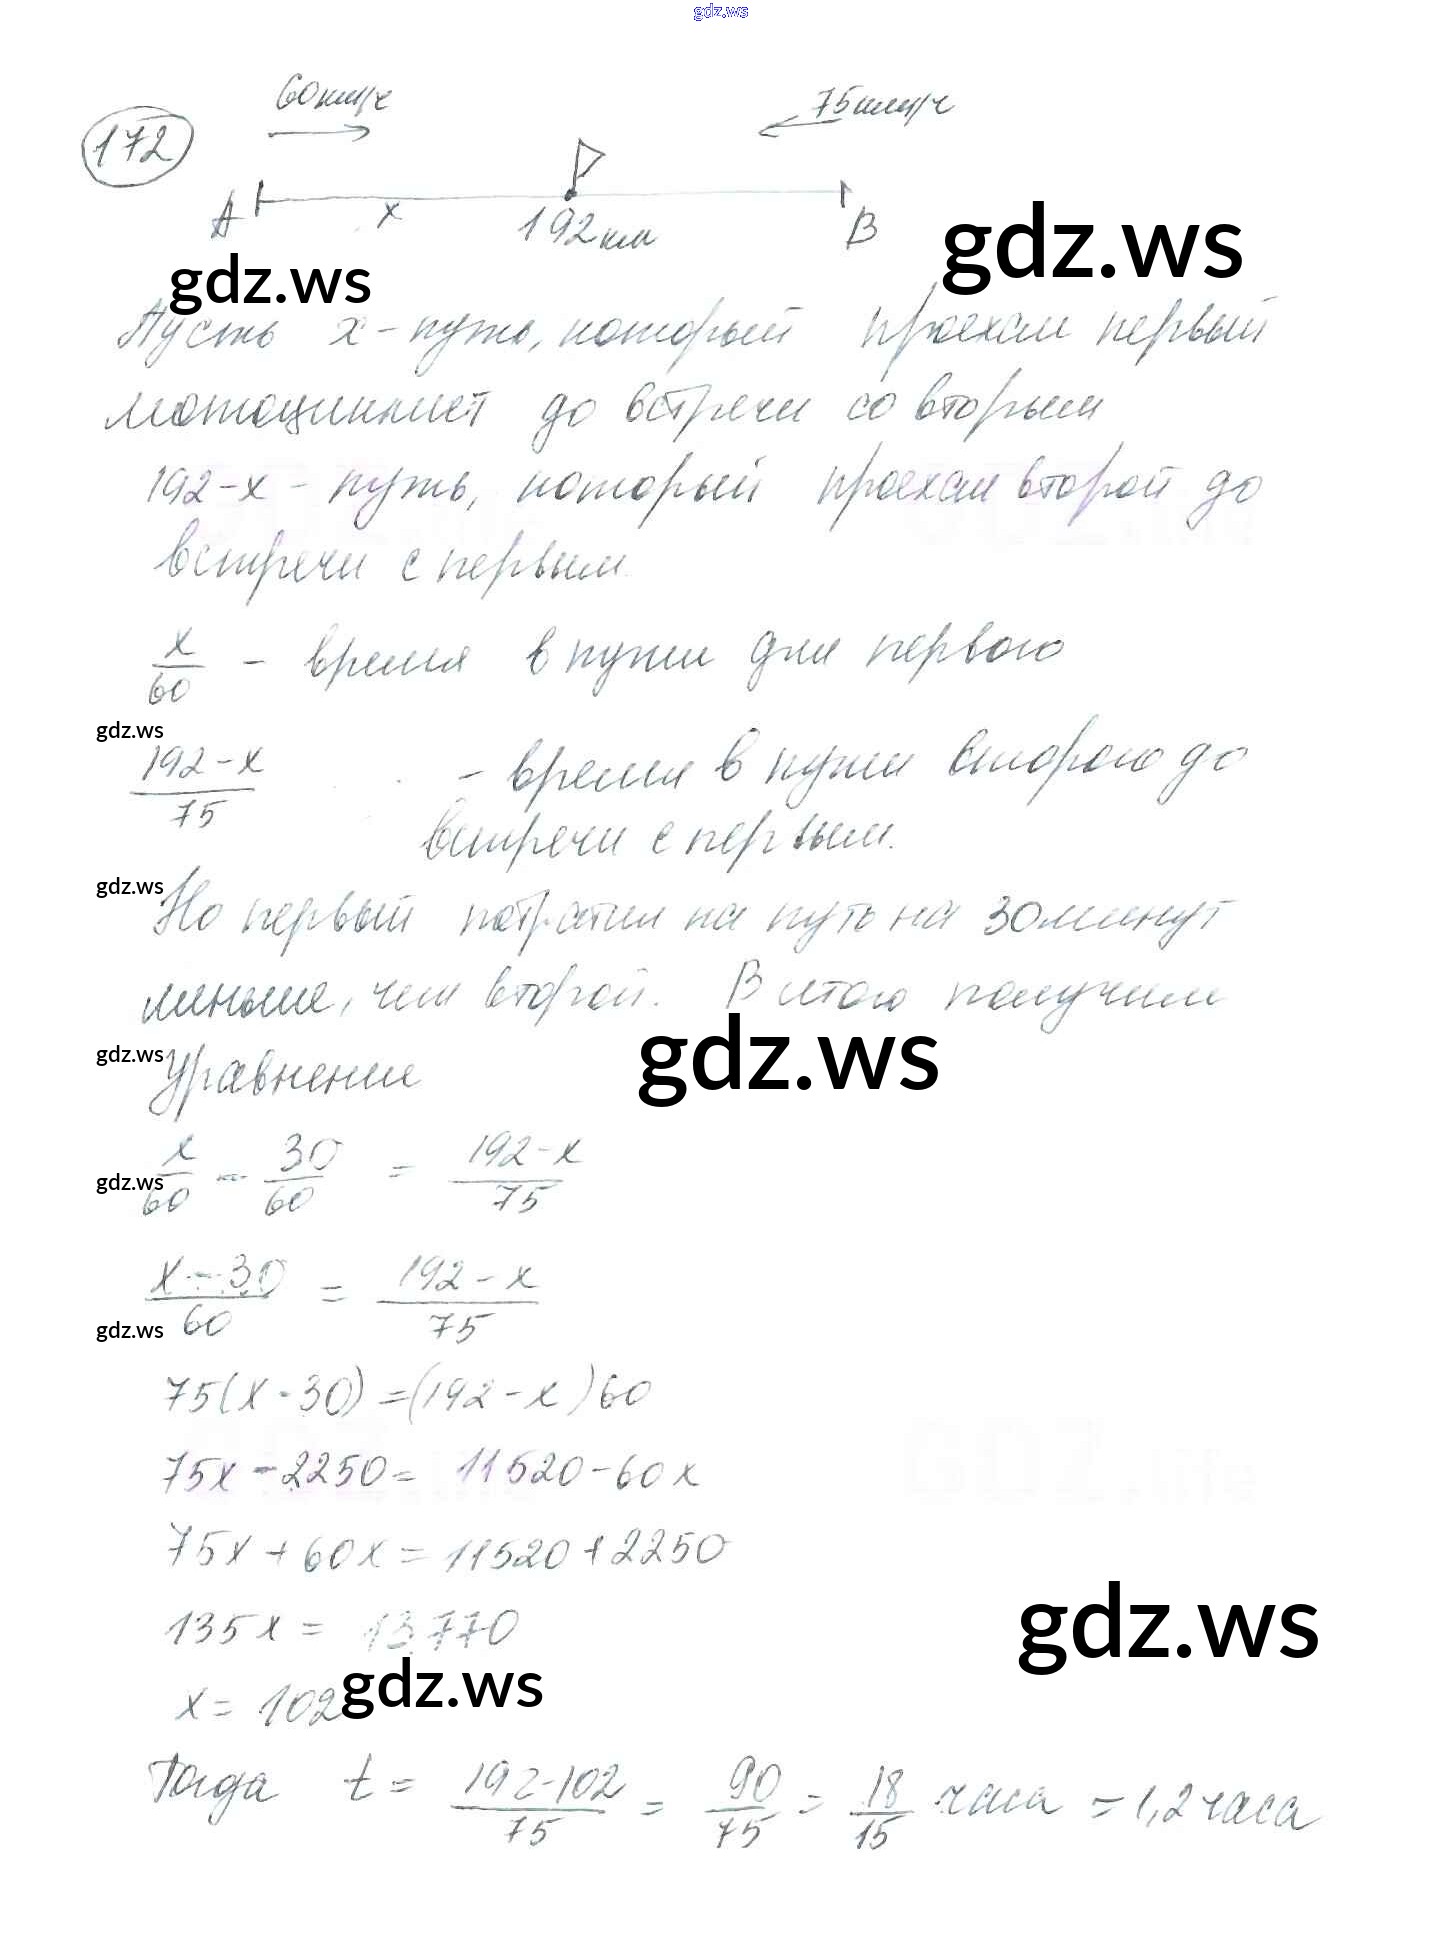 gdz.ws
60км/ч
75км/ч
172
A x 192км B
gdz.ws
gdz.ws
Пусть x - путь, который проехал первый
мотоциклист до встречи со вторым
192-x - путь, который проехал второй до
встречи с первым.
x/60 - время в пути для первого
gdz.ws
192-x/75 - время в пути второго до
встречи с первым.
gdz.ws
Но первый потратил на путь на 30 минут
меньше, чем второй. В итоге получим
gdz.ws
gdz.ws
уравнение
x/60 - 30/60 = 192-x/75
gdz.ws
x-30/60 = 192-x/75
gdz.ws
75(x-30)=(192-x)60
75x-2250=11520-60x
75x+60x=11520+2250
135x=13770
gdz.ws
x=102
gdz.ws
Тогда t = 192-102/75 = 90/75 = 18/15 часа = 1,2 часа